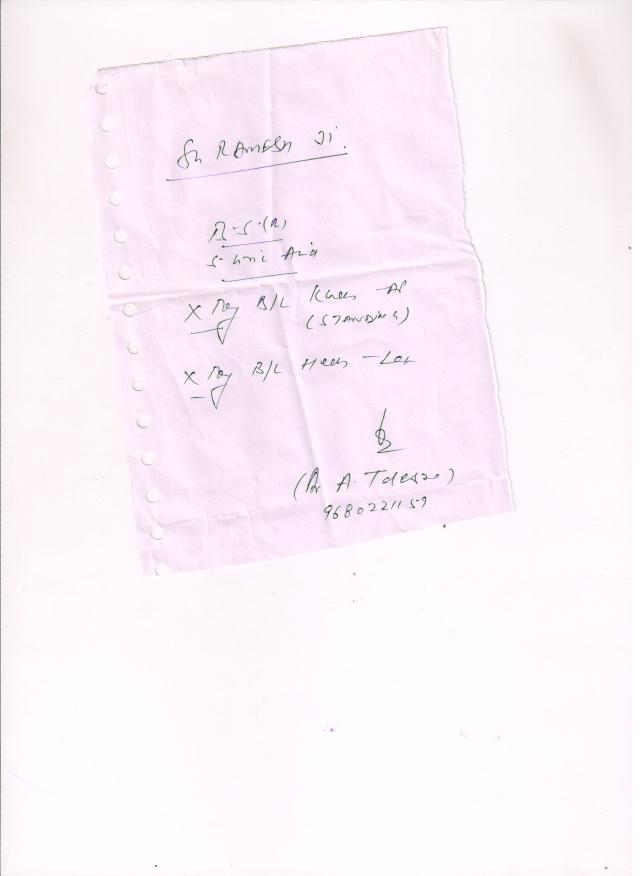 Sh RAMESH Ji.
B-S-(R)
S-Uric Acid
X Ray B/L Knees - AP
(STANDING)
X Ray B/L Heels - Lat
(Dr A.
9680221159